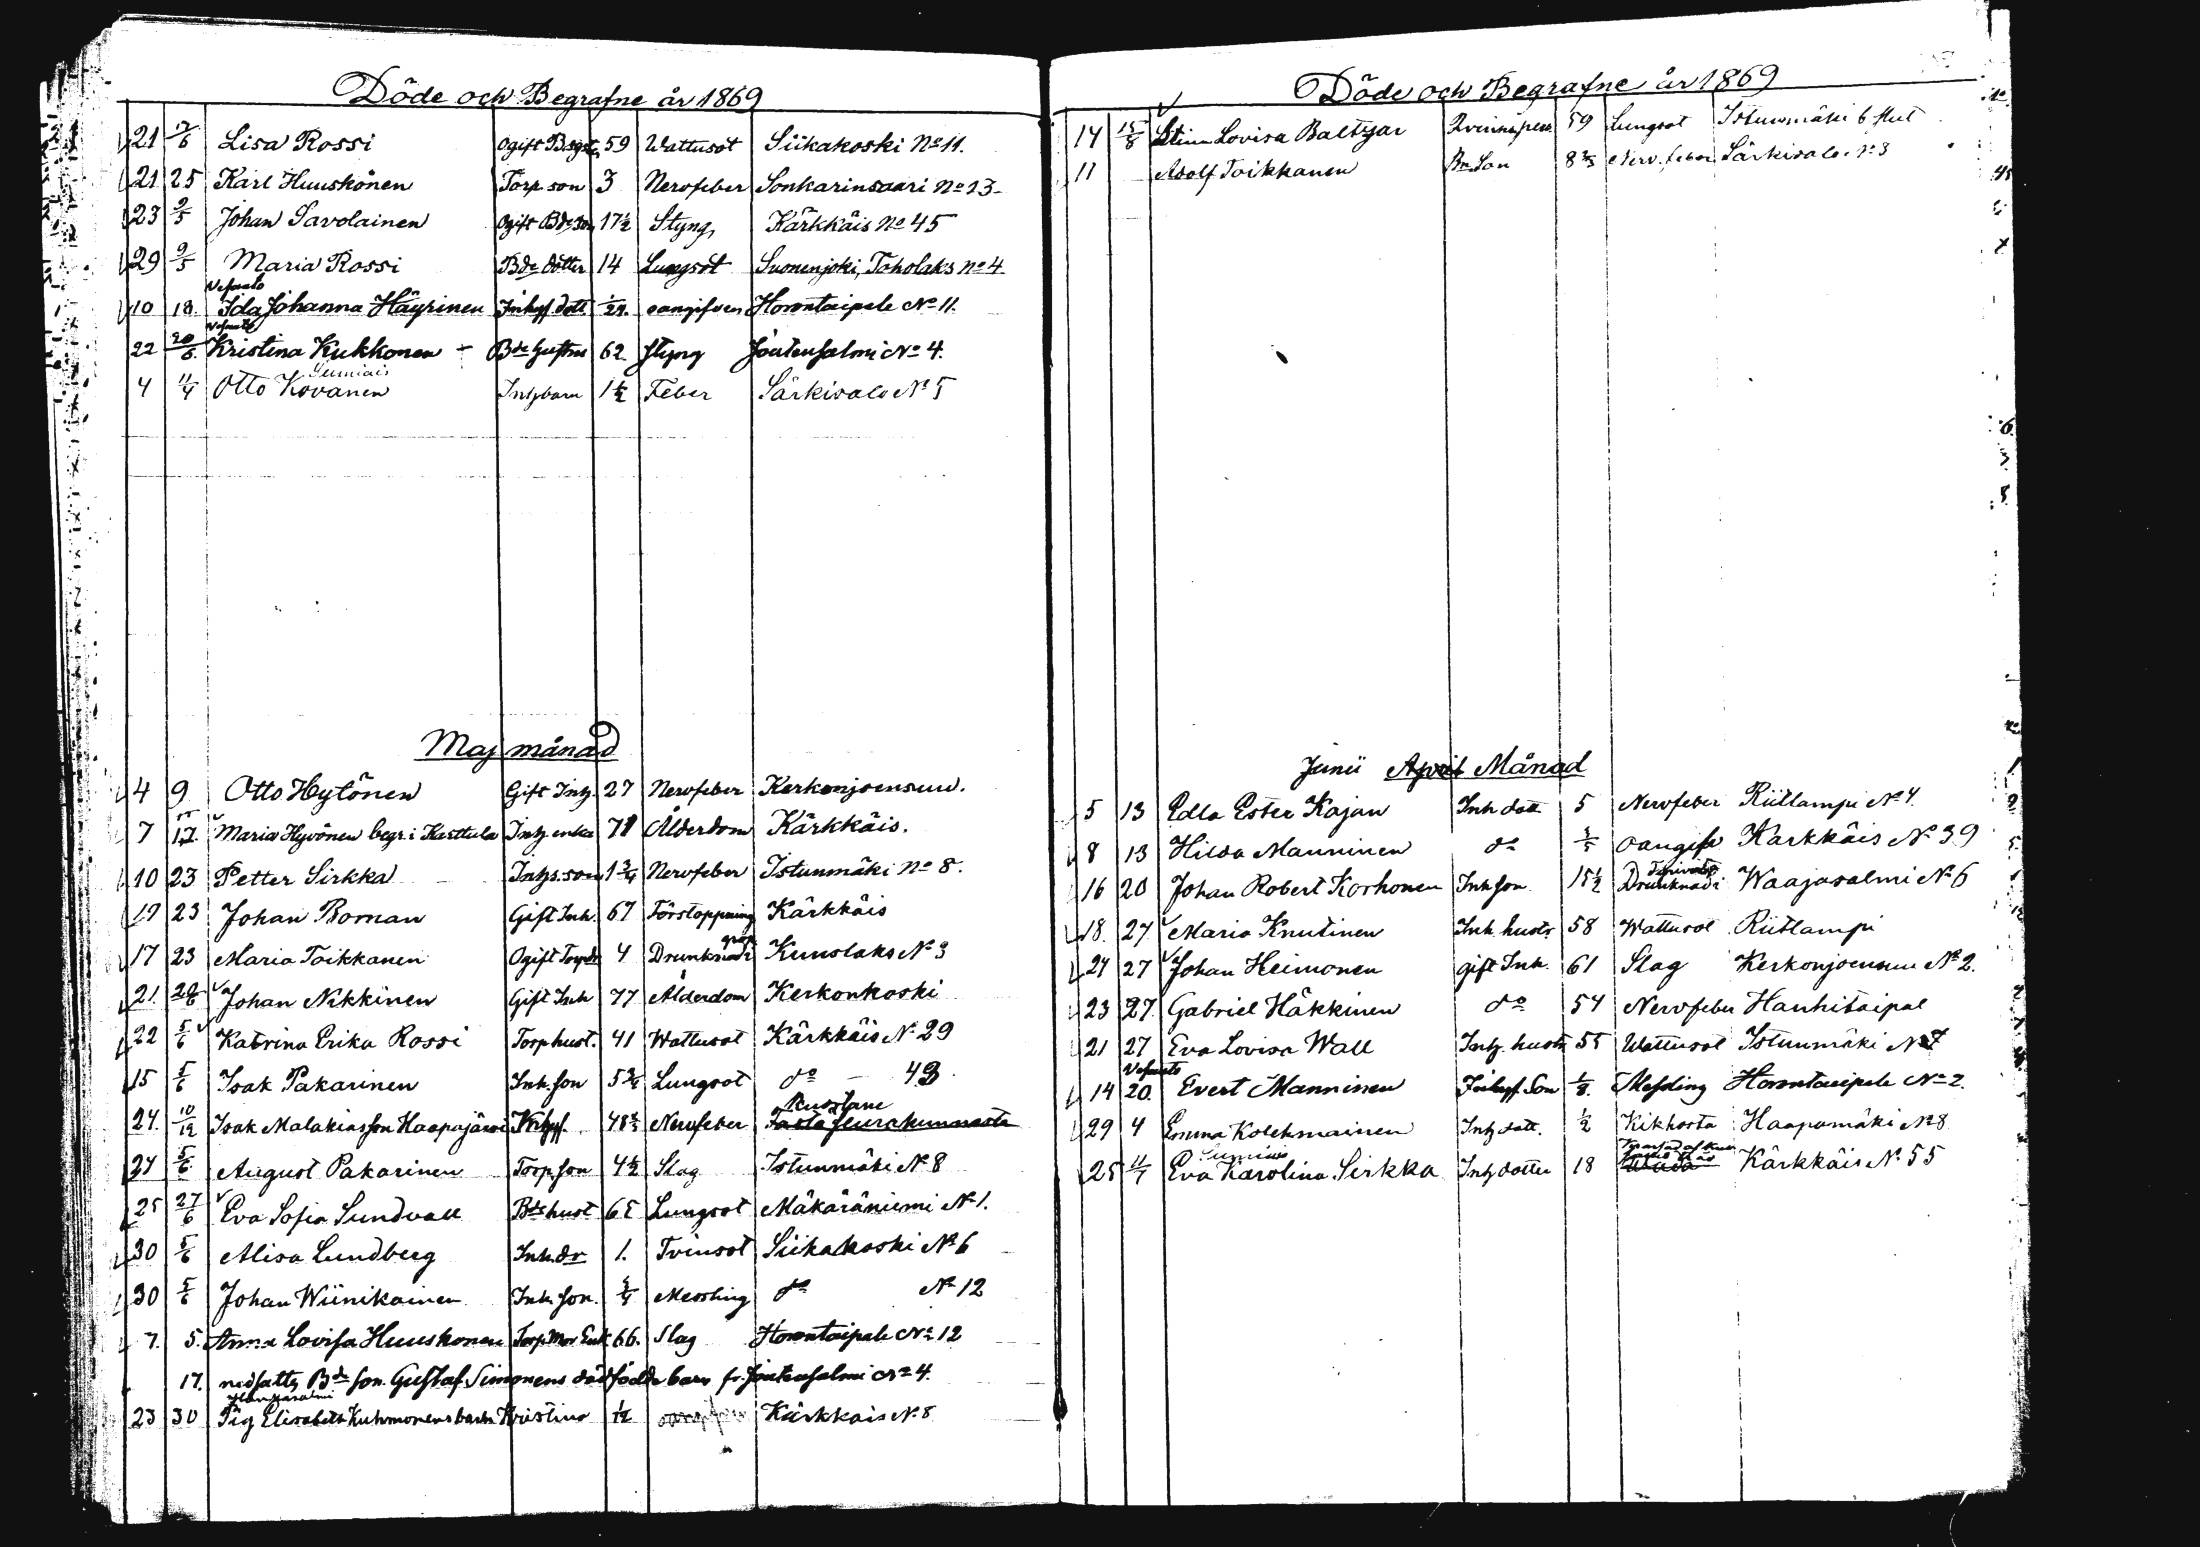 Döde och Begrafne år 1869
21 17/6 Lisa Rossi Ogift 59 Wattusot Siikakoski No 11.
21 25 Karl Huuskonen Torp. son 3 Nervfeber Sonkarinsaari No 23
23 9/5 Johan Savolainen Ogift Bde son 17 1/2 Styng Kärkkäis No 45
29 9/5 Maria Rossi Bde dotter 14 Lungsot Suonenjoki, Toholaks No 4
Vesanto
10 18. Ida Johanna Häyrinen Inhys. dott. 1/24. oangifven Horontaipale No 11.
Vesanto
22 20/6 Kristina Kukkonen Bde 62 styng Joutensalmi No 4.
Sumiais
4 11/4 Otto Kovanen Inhs barn 1 1/2 Feber Särkisalo No 5
Maj månad
4 9 Otto Hytönen Gift Inhs. 27 Nervfeber Kerkonjoensuu.
7 17 Maria Hyvönen begr. i Karttula Inhs enka 78 Ålderdom Kärkkäis.
10 23 Petter Sirkka Inhs. son 1 3/4 Nervfeber Istunmäki No 8.
19 23 Johan Boman Gift Inh. 67 Förstoppning Kärkkäis
17 23 Maria Toikkanen Ogift 4 Drunknade Kuuslaks No 3
21. 20/6 Johan Nikkinen Gift Inh 77 Ålderdom Kerkonkoski
22 5/6 Katrina Erika Rossi Torp hust. 41 Wattusot Kärkkäis No 29
15 5/6 Isak Pakarinen Inh. son 5 3/4 Lungsot do 43
24. 10/12 Isak Malakiasson Haapajärvi Inhys. 48 2/3 Nervfeber
24 5/6 August Pakarinen Torp. son 4 1/2 Slag Istunmäki No 8
25 27/6 Eva Sofia Sundvall Bde hust 65 Lungsot Mäkäräniemi No 1.
30 5/6 Alisa Lundberg Inh. dr 1. Tvinsot Siikakoski No 6
30 5/6 Johan Wiinikainen Inh. son. 3/4 Messling do No 12
7. 5. Anna Lovisa Huuskonen Torp. Mor Enk 66. Slag Horontaipale No 12
17. nedsattes Bde son. Gustaf Simonens dödfödde barn fr. Joutensalmi No 4.
Hankasalmi
23 30 Pig Elisabeth Kuhmonens barn Kristina 1/12 oangifven Kärkkäis No 8
Döde och Begrafne år 1869
14 15/8 Stina Lovisa Baltzar 59 Lungsot Istunmäki 6
11 Adolf Toikkanen Bde Son 8 2/3 Nerv. feber Särkisalo No 3
Junii April Månad
5 13 Edla Ester Kajan Inh dott 5 Nervfeber Riitlampi No 4.
8 13 Hilda Manninen do oangifv Kärkkäis No 39
16 20 Johan Robert Korhonen Inh son 15 1/2 Drunknad i Waajasalmi No 6
18. 27 Maria Knutinen Inh. hustr. 58 Wattusot Riitlampi
24 27 Johan Heimonen gift Inh. 61 Slag Kerkonjoensuu No 2.
23 27. Gabriel Häkkinen do 54 Nervfeber Hanhitaipal
21 27 Eva Lovisa Wall Inhs. hustr 55 Wattusot Istunmäki No 7
Vesanto
14 20. Evert Manninen Inhys. Son Messling Horontaipale No 2.
29 4 Emma Kolehmainen Inhs dott. 1/2 Kikhosta Haapamäki No 8
Sumiais
25 11/7 Eva Karolina Sirkka Inhs dotter 18 Kärkkäis No 55